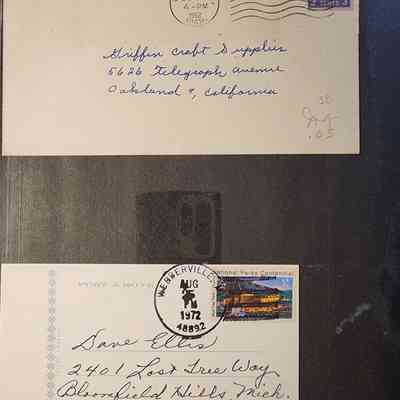 4-PM
1952
CENTS 3
Griffin Craft Supplies
5626 Telegraph Avenue
Oakland 9, California
.05
National Parks Centennial
WEBBERVILLE
AUG
1972
48892
Dave Ellis
2401 Lost Tree Way
Bloomfield Hills, Mich.